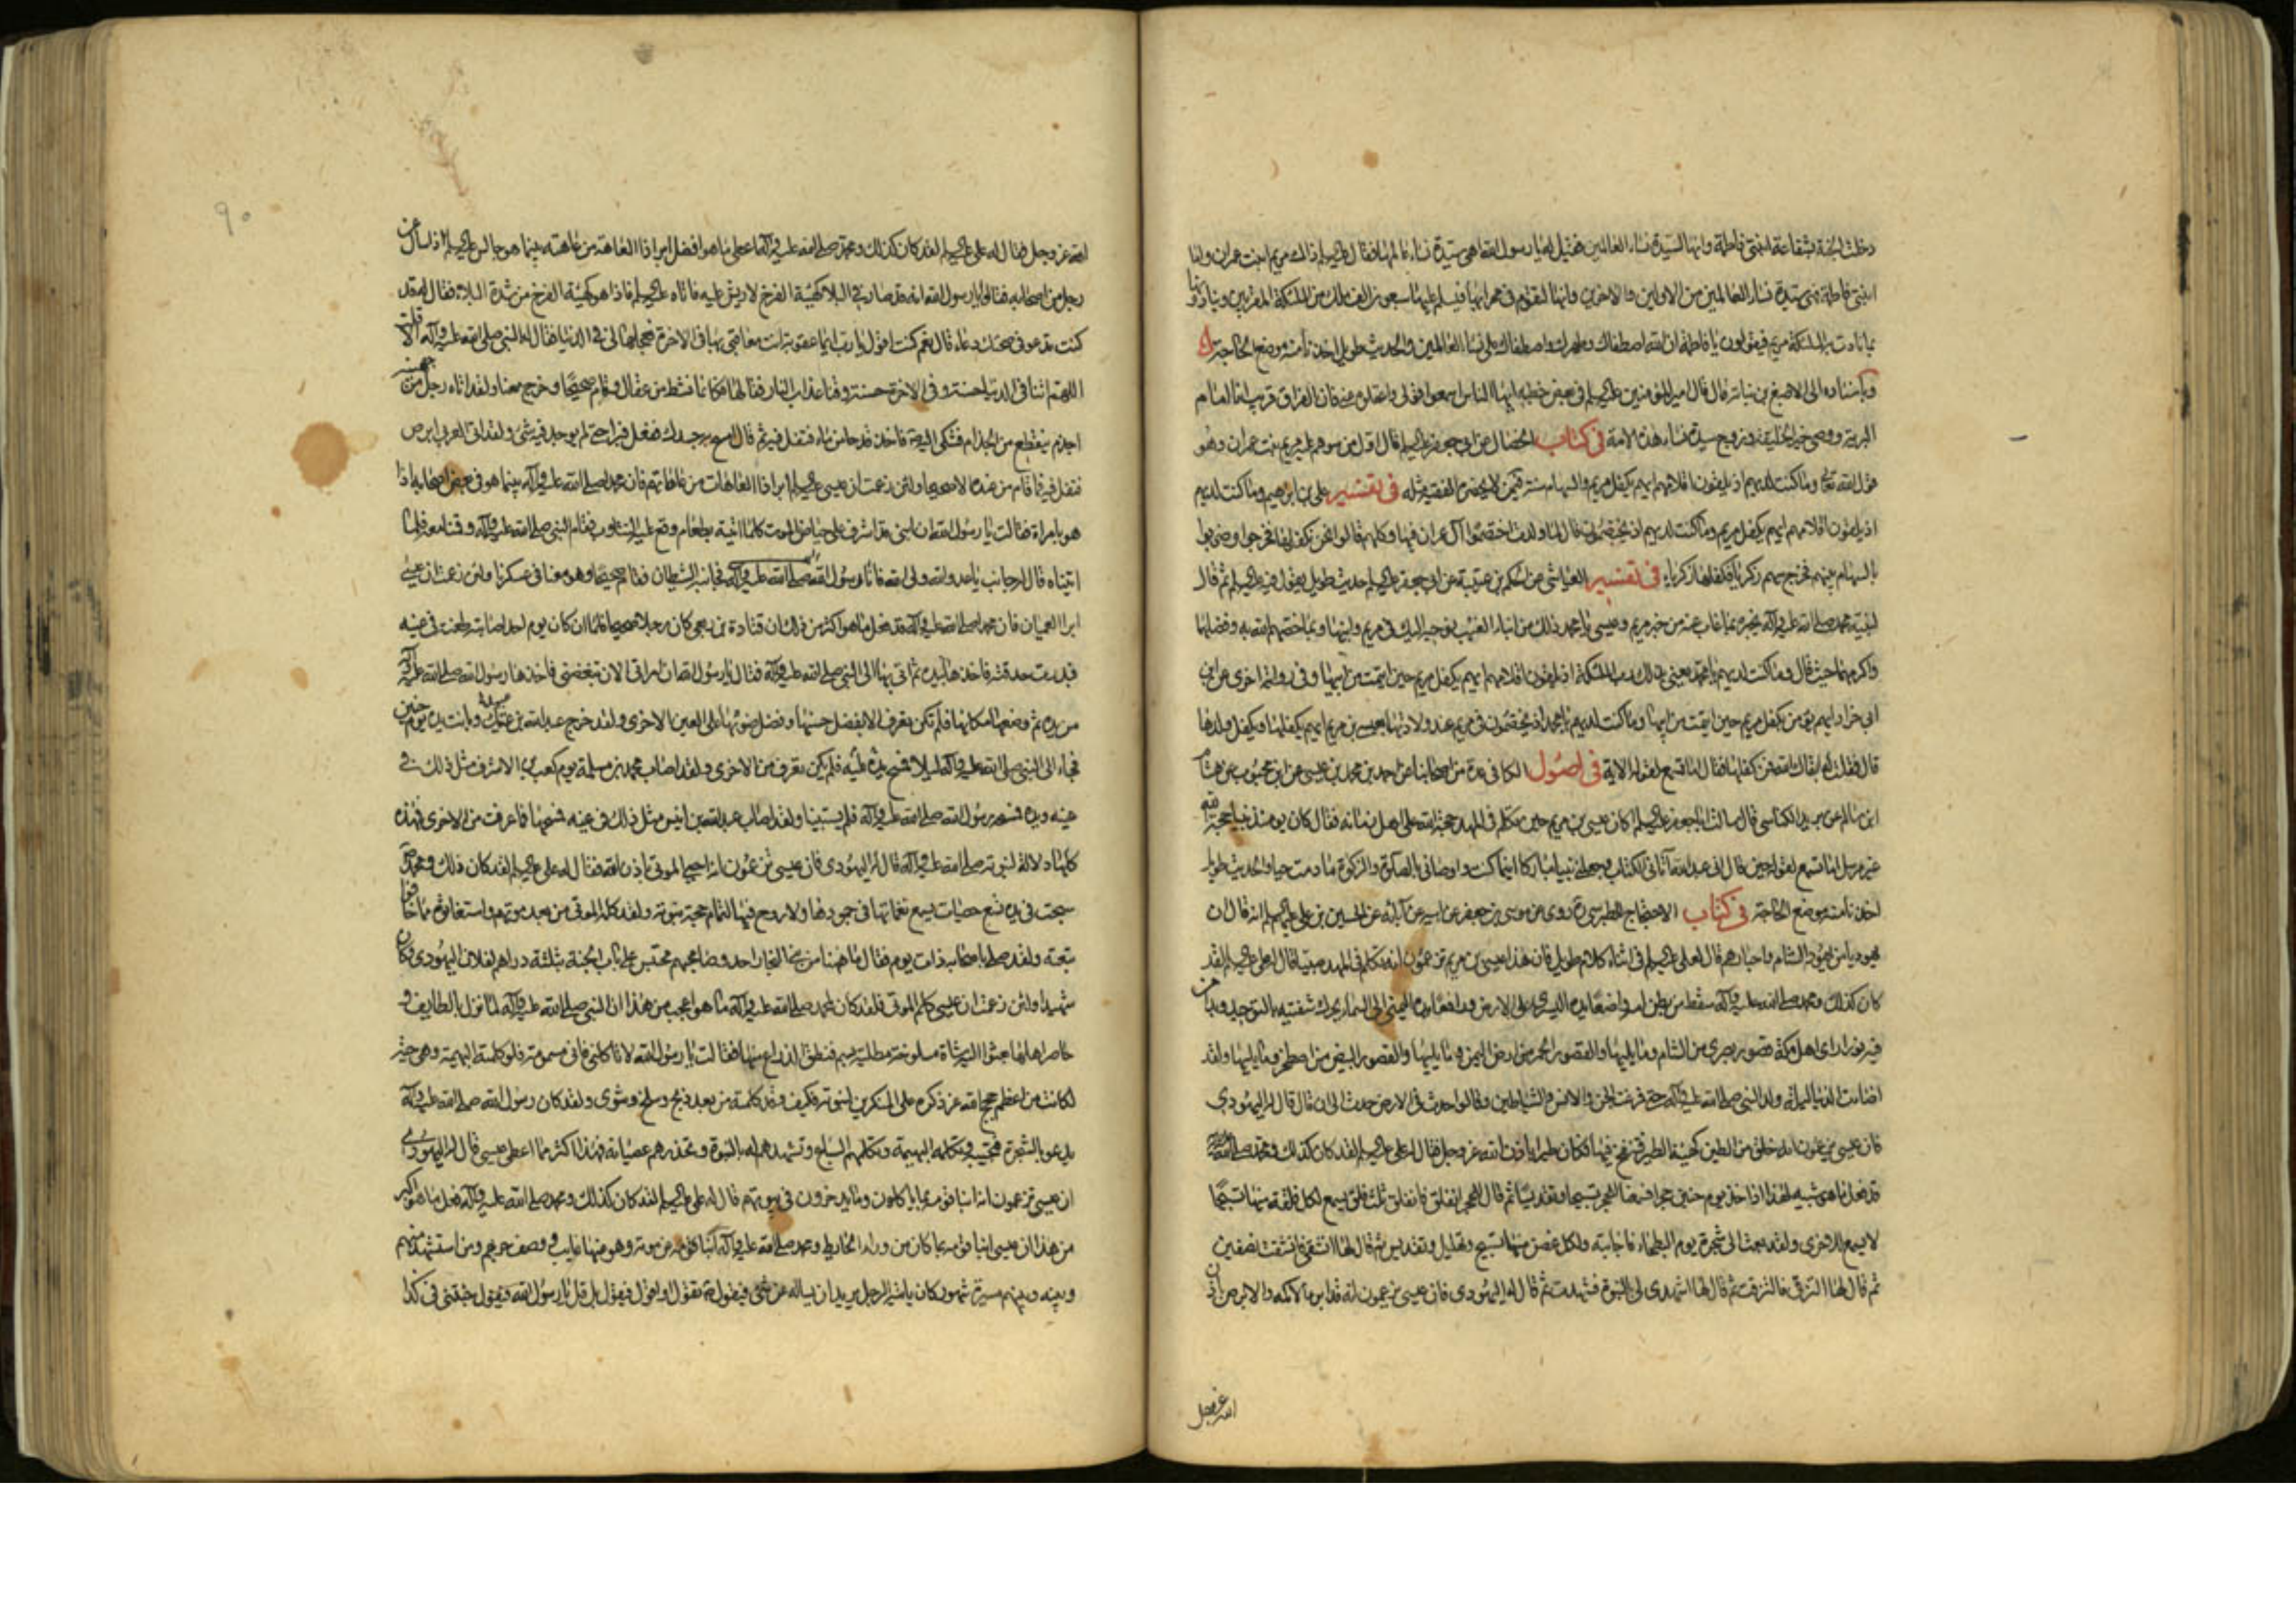 دخلت الجنة بشفاعة ابنتى فاطمة وانها لسيدة نساء العالمين فقيل له يا رسول الله اهى سيدة نساء عالمها فقال عليه السلم ذاك مريم ابنت عمران واما
ابنتى فاطمة فهى سيدة نساء العالمين من الاولين والاخرين وانها لتقوم فى محرابها فيسلم عليها سبعون الف ملك من الملئكة المقربين وينادونها
بما نادت به الملئكة مريم فيقولون يا فاطمة ان الله اصطفاك وطهرك واصطفاك على نساء العالمين والحديث طويل اخذنا منه موضع الحاجة
وباسناده الى الاصبغ بن نباته قال قال امير المؤمنين عليه السلم فى بعض خطبه ايها الناس اسمعوا قولى واعقلوه عنى فان الفراق قريب انا امام
البرية ووصى خير الخليقة وزوج سيدة نساء هذه الامة فى كتاب الخصال عن ابى جعفر عليه السلم قال اول من سوهم عليه مريم بنت عمران وهو
قول الله تعالى وما كنت لديهم اذ يلقون اقلامهم ايهم يكفل مريم والسهام ستة فى من لا يحضره الفقيه مثله فى تفسير على بن ابرهيم وما كنت لديهم
اذ يلقون اقلامهم ايهم يكفل مريم وما كنت لديهم اذ يختصمون قال لما ولدت اختصموا آل عمران فيها وكلهم قالوا نحن نكفلها فخرجوا وضربوا
بالسهام بينهم فخرج سهم زكريا فكفلها زكريا فى تفسير العياشى عن الحكم بن عتيبة عن ابى جعفر عليه السلم حديث طويل يقول فيه عليه السلم ثم قال
لنبيه محمد صلى الله عليه وآله يخبره بما غاب عنه من خبر مريم وعيسى يا محمد ذلك من انباء الغيب نوحيه اليك فى مريم وابنها وبما خصهما الله به وفضلهما
واكرمهما حيث قال وما كنت لديهم يا محمد يعنى بذلك رب الملئكة اذ يلقون اقلامهم ايهم يكفل مريم حين ايتمت من ابيها وفى رواية اخرى عن ابن
ابى خراد ايهم يكفل مريم حين ايتمت من ابيها وما كنت لديهم يا محمد اذ يختصمون فى مريم عند ولادتها بعيسى بن مريم ايهم يكفلها ويكفل ولدها
قال فقلت له ابقاك الله فمن كفلها فقال اما تسمع لقوله الاية فى اصول الكافى عدة من اصحابنا عن احمد بن محمد بن عيسى عن ابن محبوب عن هشام
ابن سالم عن بريد الكناسى قال سالت ابا جعفر عليه السلم اكان عيسى بن مريم حين تكلم فى المهد حجة الله على اهل زمانه فقال كان يومئذ نبيا حجة الله
غير مرسل اما تسمع لقوله حين قال انى عبد الله آتانى الكتاب وجعلنى نبيا وجعلنى مباركا اينما كنت واوصانى بالصلوة والزكوة ما دمت حيا والحديث طويل
اخذنا منه موضع الحاجة فى كتاب الاحتجاج للطبرسى ره روى عن موسى بن جعفر عن ابيه عن آبائه عن الحسين بن على عليهم السلم انه قال ان
يهوديا من يهود الشام واحبارهم قال لعلى عليه السلم فى اثناء كلام طويل فان هذا عيسى بن مريم تزعمون انه تكلم فى المهد صبيا قال له على عليه السلم لقد
كان كذلك ومحمد صلى الله عليه وآله سقط من بطن امه واضعا يده اليسرى على الارض ورافعا يده اليمنى الى السماء يحرك شفتيه بالتوحيد وبدا من
فيه نور راى اهل مكة قصور بصرى من الشام وما يليها والقصور الحمر من ارض اليمن وما يليها والقصور البيض من اصطخر وما يليها ولقد
اضاءت الدنيا ليلة ولد النبى صلى الله عليه وآله حتى فزعت الجن والانس والشياطين وقالوا حدث فى الارض حدث الى ان قال قال له اليهودى
فان عيسى يزعمون انه خلق من الطين كهيئة الطير فنفخ فيها فكان طيرا باذن الله عز وجل فقال له على عليه السلم لقد كان كذلك ومحمد صلى الله عليه وآله
قد فعل ما هو شبيه لهذا اذ اخذ يوم حنين حجرا فسمعنا للحجر تسبيحا وتقديسا ثم قال للحجر انفلق فانفلق ثلث فلق يسمع لكل فلقة منها تسبيحا
لا يسمع للاخرى ولقد بعث الى شجرة يوم البطحاء فاجابته ولكل غصن منها تسبيح وتهليل وتقديس ثم قال لها انشقى فانشقت نصفين
ثم قال لها التزقى فالتزقت ثم قال لها اشهدى لى بالنبوة فشهدت ثم قال له اليهودى فان عيسى يزعمون انه قد ابرء الاكمه والابرص باذن
الله عز وجل
۹۰
الله عز وجل فقال له على عليه السلم لقد كان كذلك ومحمد صلى الله عليه وآله اعطى ما هو افضل ابراء ذا العاهة من عاهته بينما هو جالس عليه السلم اذ سال عن
رجل من اصحابه فقالوا يا رسول الله انه قد صار فى البلاء كهيئة الفرخ لا ريش عليه فاتاه عليه السلم فاذا هو كهيئة الفرخ من شدة البلاء فقال له قد
كنت تدعو فى صحتك دعاء قال نعم كنت اقول يا رب ايما عقوبة انت معاقبى بها فى الاخرة فعجلها لى فى الدنيا فقال له النبى صلى الله عليه وآله الا قلت
اللهم اتنا فى الدنيا حسنة وفى الاخرة حسنة وقنا عذاب النار فقالها فكانما نشط من عقال وقام صحيحا وخرج معنا ولقد اتاه رجل من جهينة
اجذم يتقطع من الجذام فشكى اليه فاخذ قدحا من ماء فتفل فيه ثم قال امسح به جسدك ففعل فبرا حتى لم يوجد فيه شئ ولقد اتى اعرابى ابرص
فتفل فيه فما قام من عنده الا صحيحا ولئن زعمت ان عيسى عليه السلم ابرا ذا العاهات من عاهاتهم فان محمدا صلى الله عليه وآله بينما هو فى بعض اصحابه اذا
هو بامراة فقالت يا رسول الله ان ابنى قد اشرف على حياض الموت كلما اتيته بطعام وقع عليه التثاوب فقام النبى صلى الله عليه وآله وقمنا معه فلما
اتيناه قال له جانب يا عدو الله ولى الله فانا رسول الله صلى الله عليه وآله فجانبه الشيطان فقام صحيحا وهو معنا فى عسكرنا ولئن زعمت ان عيسى
ابرا العميان فان محمدا صلى الله عليه وآله قد فعل ما هو اكثر من ذلك ان قتادة بن ربعى كان رجلا صحيحا فلما ان كان يوم احد اصابته طعنة فى عينه
فبدرت حدقته فاخذها بيده ثم اتى بها الى النبى صلى الله عليه وآله فقال يا رسول الله ان امراتى الان تبغضنى فاخذها رسول الله صلى الله عليه وآله
من يده ثم وضعها مكانها فلم تكن تعرف الا بفضل حسنها وفضل ضوئها على العين الاخرى ولقد خرج عبد الله بن عتيك وبانت يده يوم حنين
فجاء الى النبى صلى الله عليه وآله ليلا فمسح يده عليه فلم يكن تعرف من الاخرى ولقد اصاب محمد بن مسلمة يوم كعب بن الاشرف مثل ذلك فى
عينه ويده فمسحه رسول الله صلى الله عليه وآله فلم يستبينا ولقد اصاب عبد الله بن انيس مثل ذلك فى عينه فمسحها فما عرفت من الاخرى فهذه
كلها دلالة لنبوته صلى الله عليه وآله قال له اليهودى فان عيسى يزعمون انه احيى الموتى باذن الله فقال له على عليه السلم لقد كان ذلك ومحمد ص
سبحت فى يده تسع حصيات يسمع نغماتها فى جمودها ولا روح فيها لتمام حجة نبوته ولقد كلمه الموتى من بعد موتهم واستغاثوه مما خافوا
تبعته ولقد صلى باصحابه ذات يوم فقال ما هنا من بنى النجار احد وصاحبهم محتبس على باب الجنة بثلثة دراهم لفلان اليهودى وكان
شهيدا ولئن زعمت ان عيسى كلم الموتى فلقد كان لمحمد صلى الله عليه وآله ما هو اعجب من هذا ان النبى صلى الله عليه وآله لما نزل بالطايف و
حاصر اهلها بعثوا اليه شاة مسلوخة مطلية بسم فنطق الذراع منها فقالت يا رسول الله لا تاكلنى فانى مسمومة فلو كلمته البهيمة وهى حية
لكانت من اعظم حجج الله عز ذكره على المنكرين لنبوته فكيف وقد كلمته من بعد ذبح وسلخ وشوى ولقد كان رسول الله صلى الله عليه وآله
يدعو بالشجرة فتجيبه وتكلمه البهيمة وتكلمه السباع وتشهد له بالنبوة وتحذرهم عصيانه فهذا اكثر مما اعطى عيسى قال له اليهودى
ان عيسى تزعمون انه انبا قومه بما ياكلون وما يدخرون فى بيوتهم قال له على عليه السلم لقد كان كذلك ومحمد صلى الله عليه وآله فعل ما هو اكبر
من هذا ان عيسى انبا قومه بما كان من وراء الحايط ومحمد صلى الله عليه وآله انبا عن موته وهو عنها غايب ووصف حربهم ومن استشهد منهم
وبينه وبينهم مسيرة شهور وكان ياتيه الرجل يريد ان يساله عن شئ فيقول ص تقول او اقول فيقول بل قل يا رسول الله فيقول جئتنى فى كذا